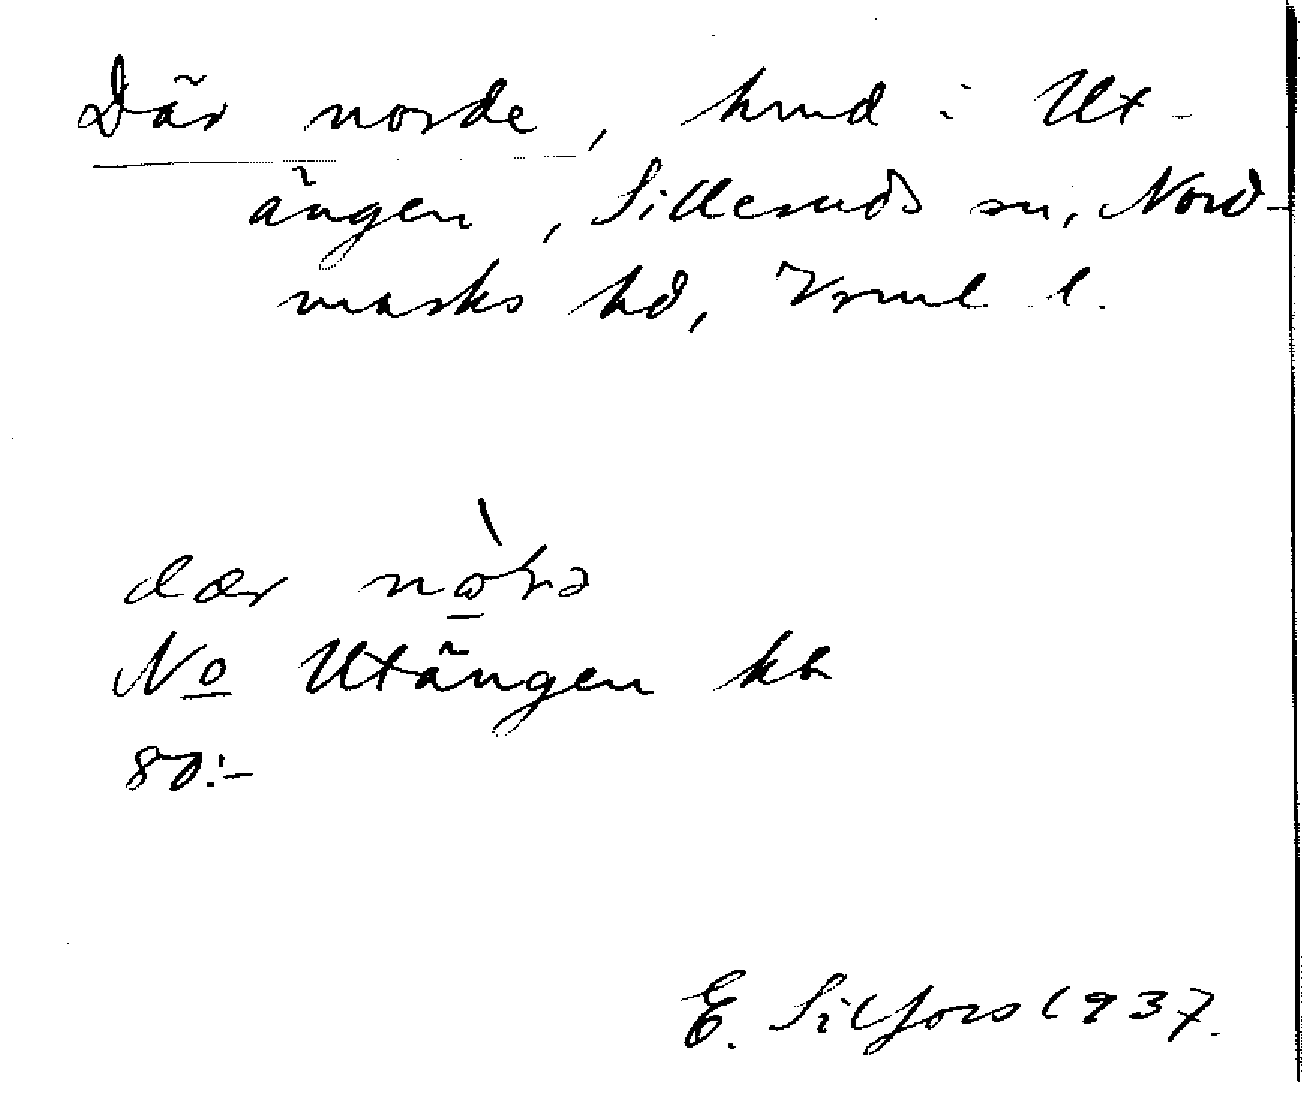 Där norde, hmd i Ut-
ängen, Silleruds sn, Nord-
marks hd, Vrml l.
dær
No Utängen kb
80:-
E. Silfors 1937.